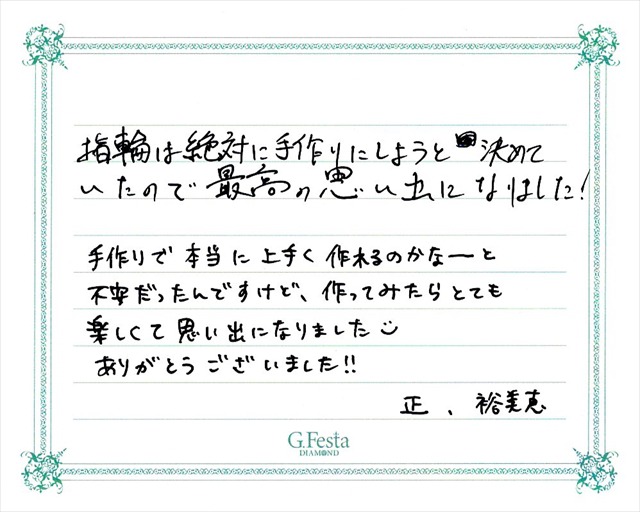 指輪は絶対に手作りにしようと決めて
いたので最高の思い出になりました!
手作りで本当に上手く作れるのかなーと
不安だったんですけど、作ってみたらとても
楽しくて思い出になりました
ありがとうございました!!
正、裕美恵
G.Festa
DIAMOND